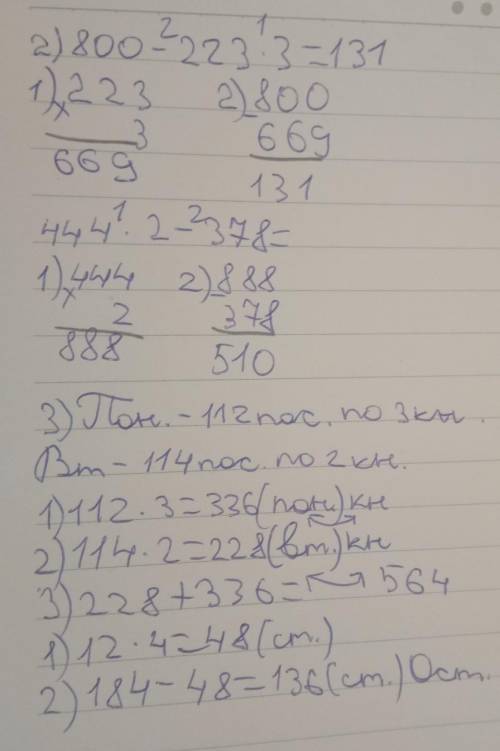 2) 800 -² 223 ·¹ 3 = 131
1) × 223 2) - 800
3 669
669 131
444 ·¹ 2 -² 378 =
1) × 444 2) - 888
2 378
888 510
3) Пон. - 112 пос. по 3 кн.
Вт - 114 пос. по 2 кн.
1) 112 · 3 = 336 (пон.) кн
2) 114 · 2 = 228 (вт.) кн
3) 228 + 336 = 564
1) 12 · 4 = 48 (ст.)
2) 184 - 48 = 136 (ст.) Ост.